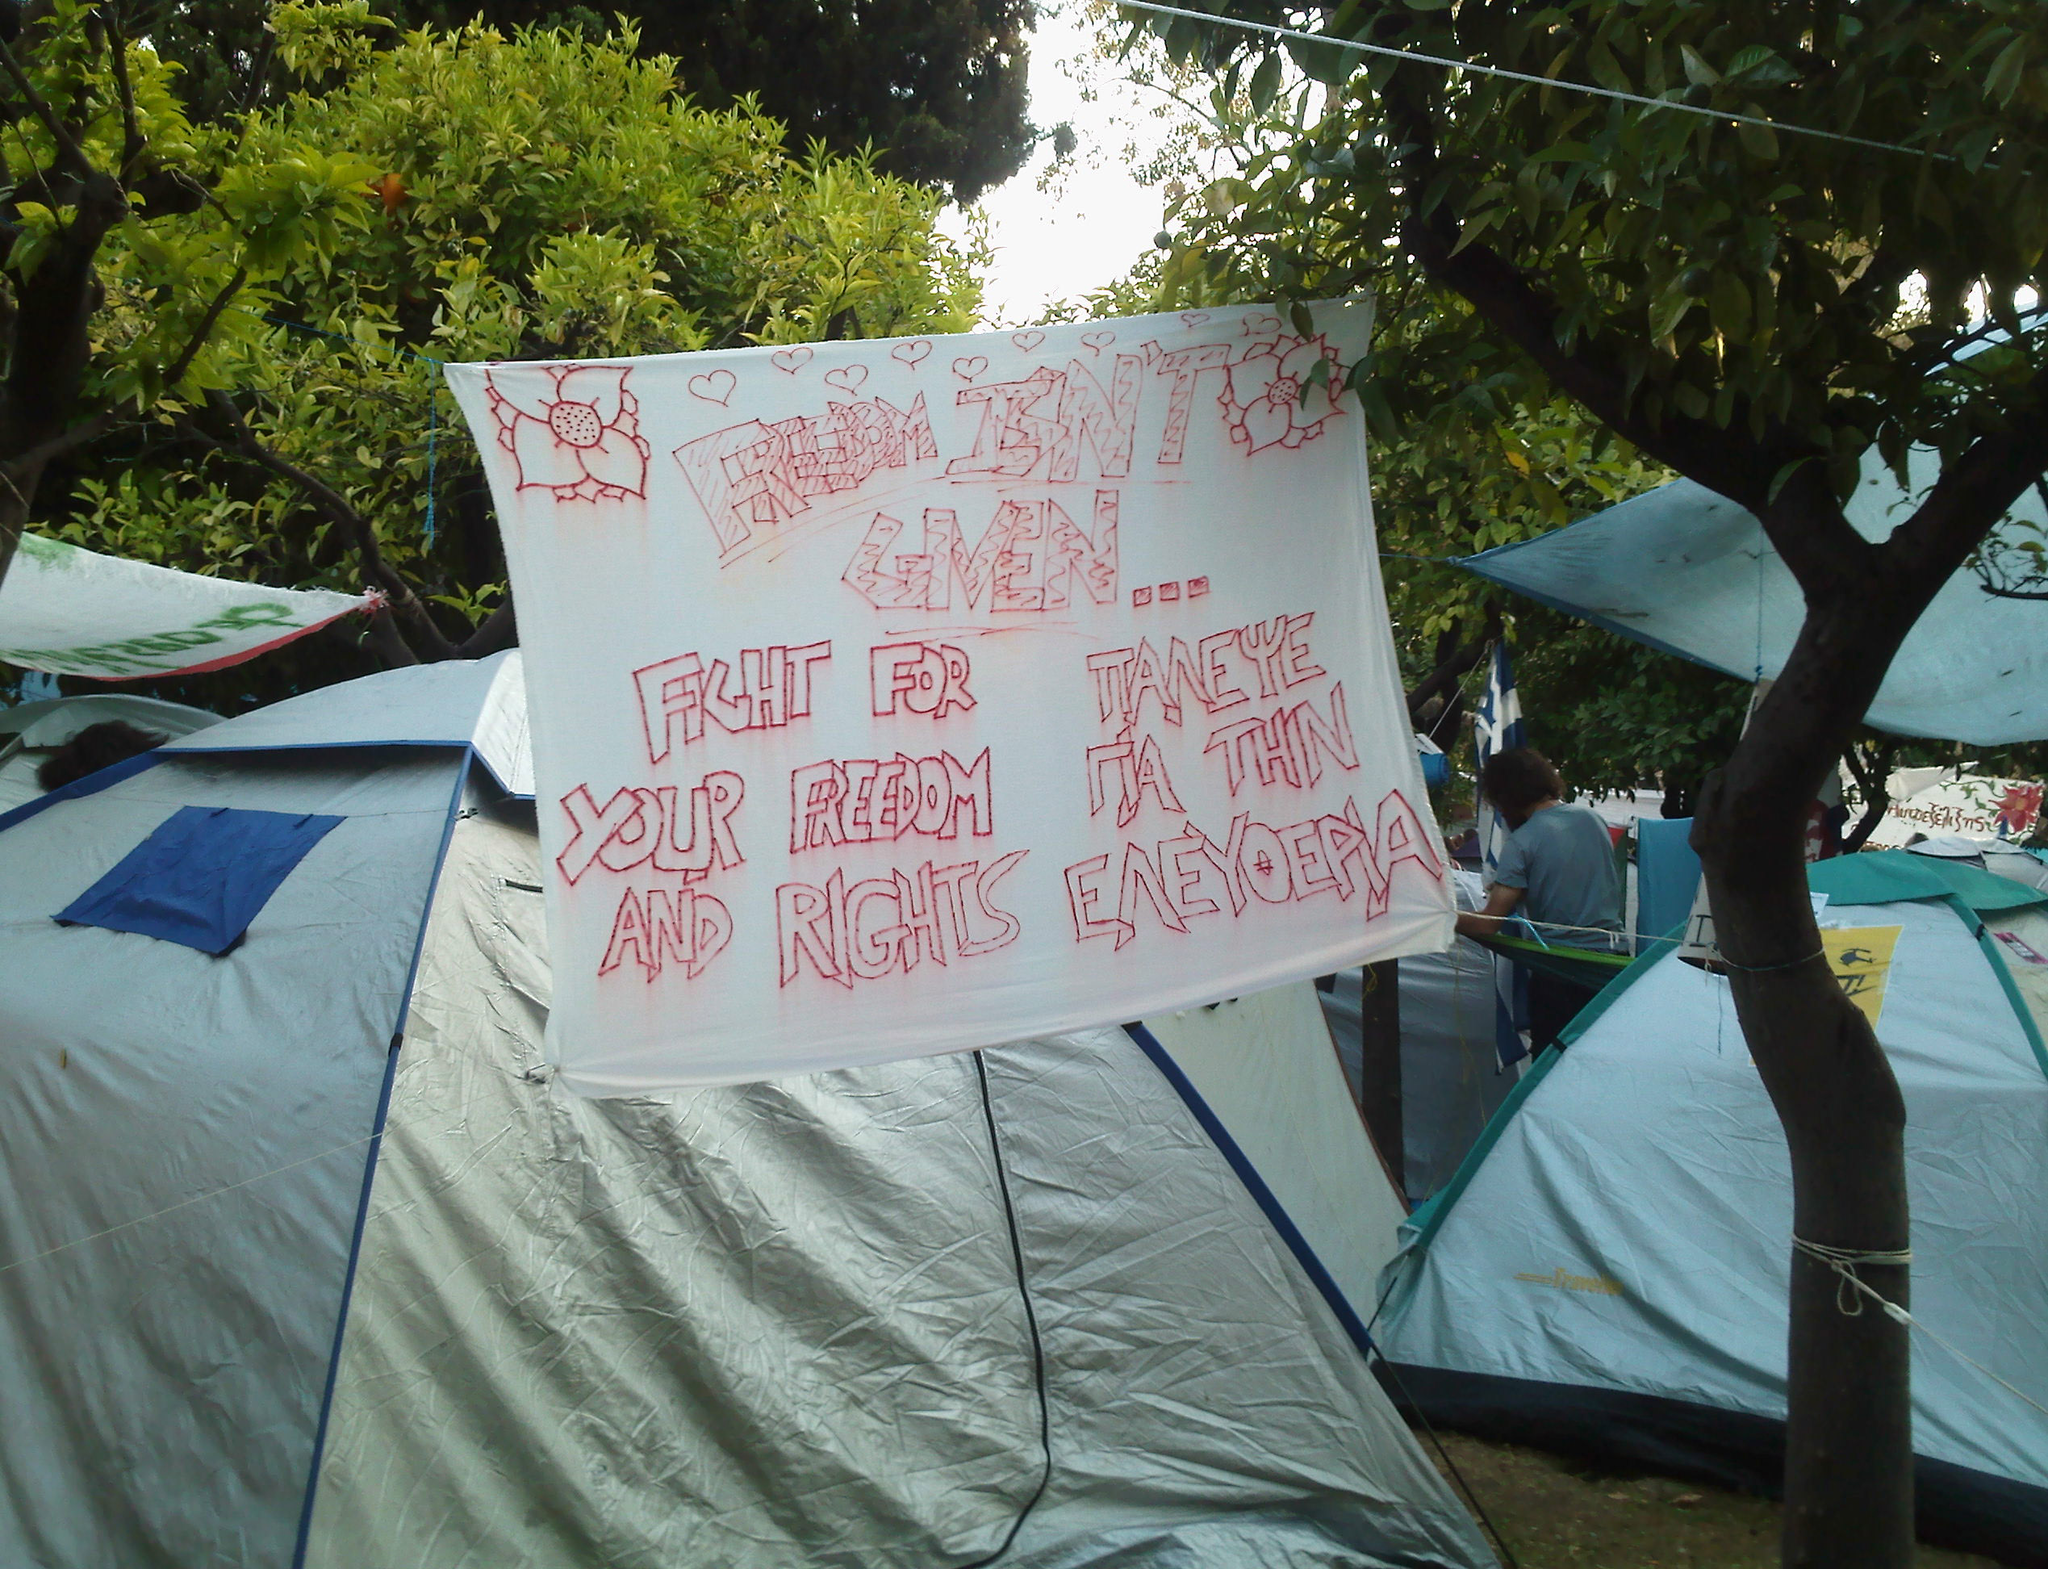 FREEDOM ISN'T
GIVEN...
FIGHT FOR
YOUR FREEDOM
AND RIGHTS
ΠΑΛΕΨΕ
ΓΙΑ ΤΗΝ
ΕΛΕΥΘΕΡΙΑ